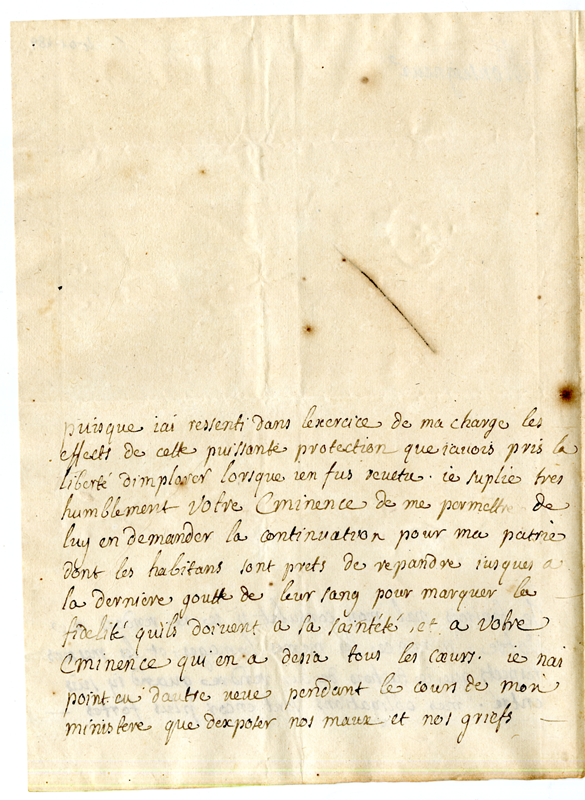 puisque iai ressenti dans lexercice de ma charge les
effects de cette puissante protection que iavois pris la
liberté dimplorer lorsque ien fus revetu. ie suplie tres
humblement Votre Eminence de me permettre de
luy en demander la continuation pour ma patrie
dont les habitans sont prets de repandre iusques a
la derniere goutte de leur sang pour marquer la
fidelité quils doivent a sa saintété, et a Votre
Eminence qui en a desia tous les cœurs. ie nai
point eu dautre veue pendant le cours de mon
ministere que dexposer nos maux et nos griefs